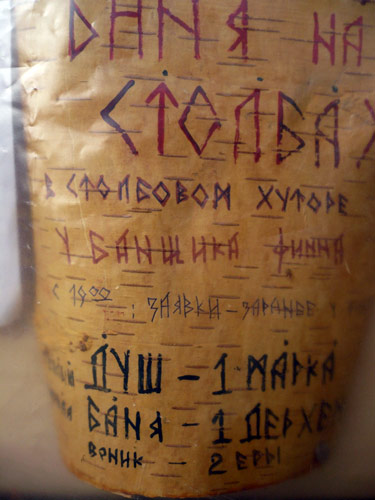 БАНЯ НА
СТОЛБАХ
В СТОЛБОВОМ ХУТОРЕ
У БАНЩИКА ФИННА
С 19⁰⁰ : ЗАЯВКИ - ЗАРАНЕЕ У
ДУШ - 1 МАРКА
БАНЯ - 1 ДЕРХЕМ
ВРНИК - 2 ЕРЫ